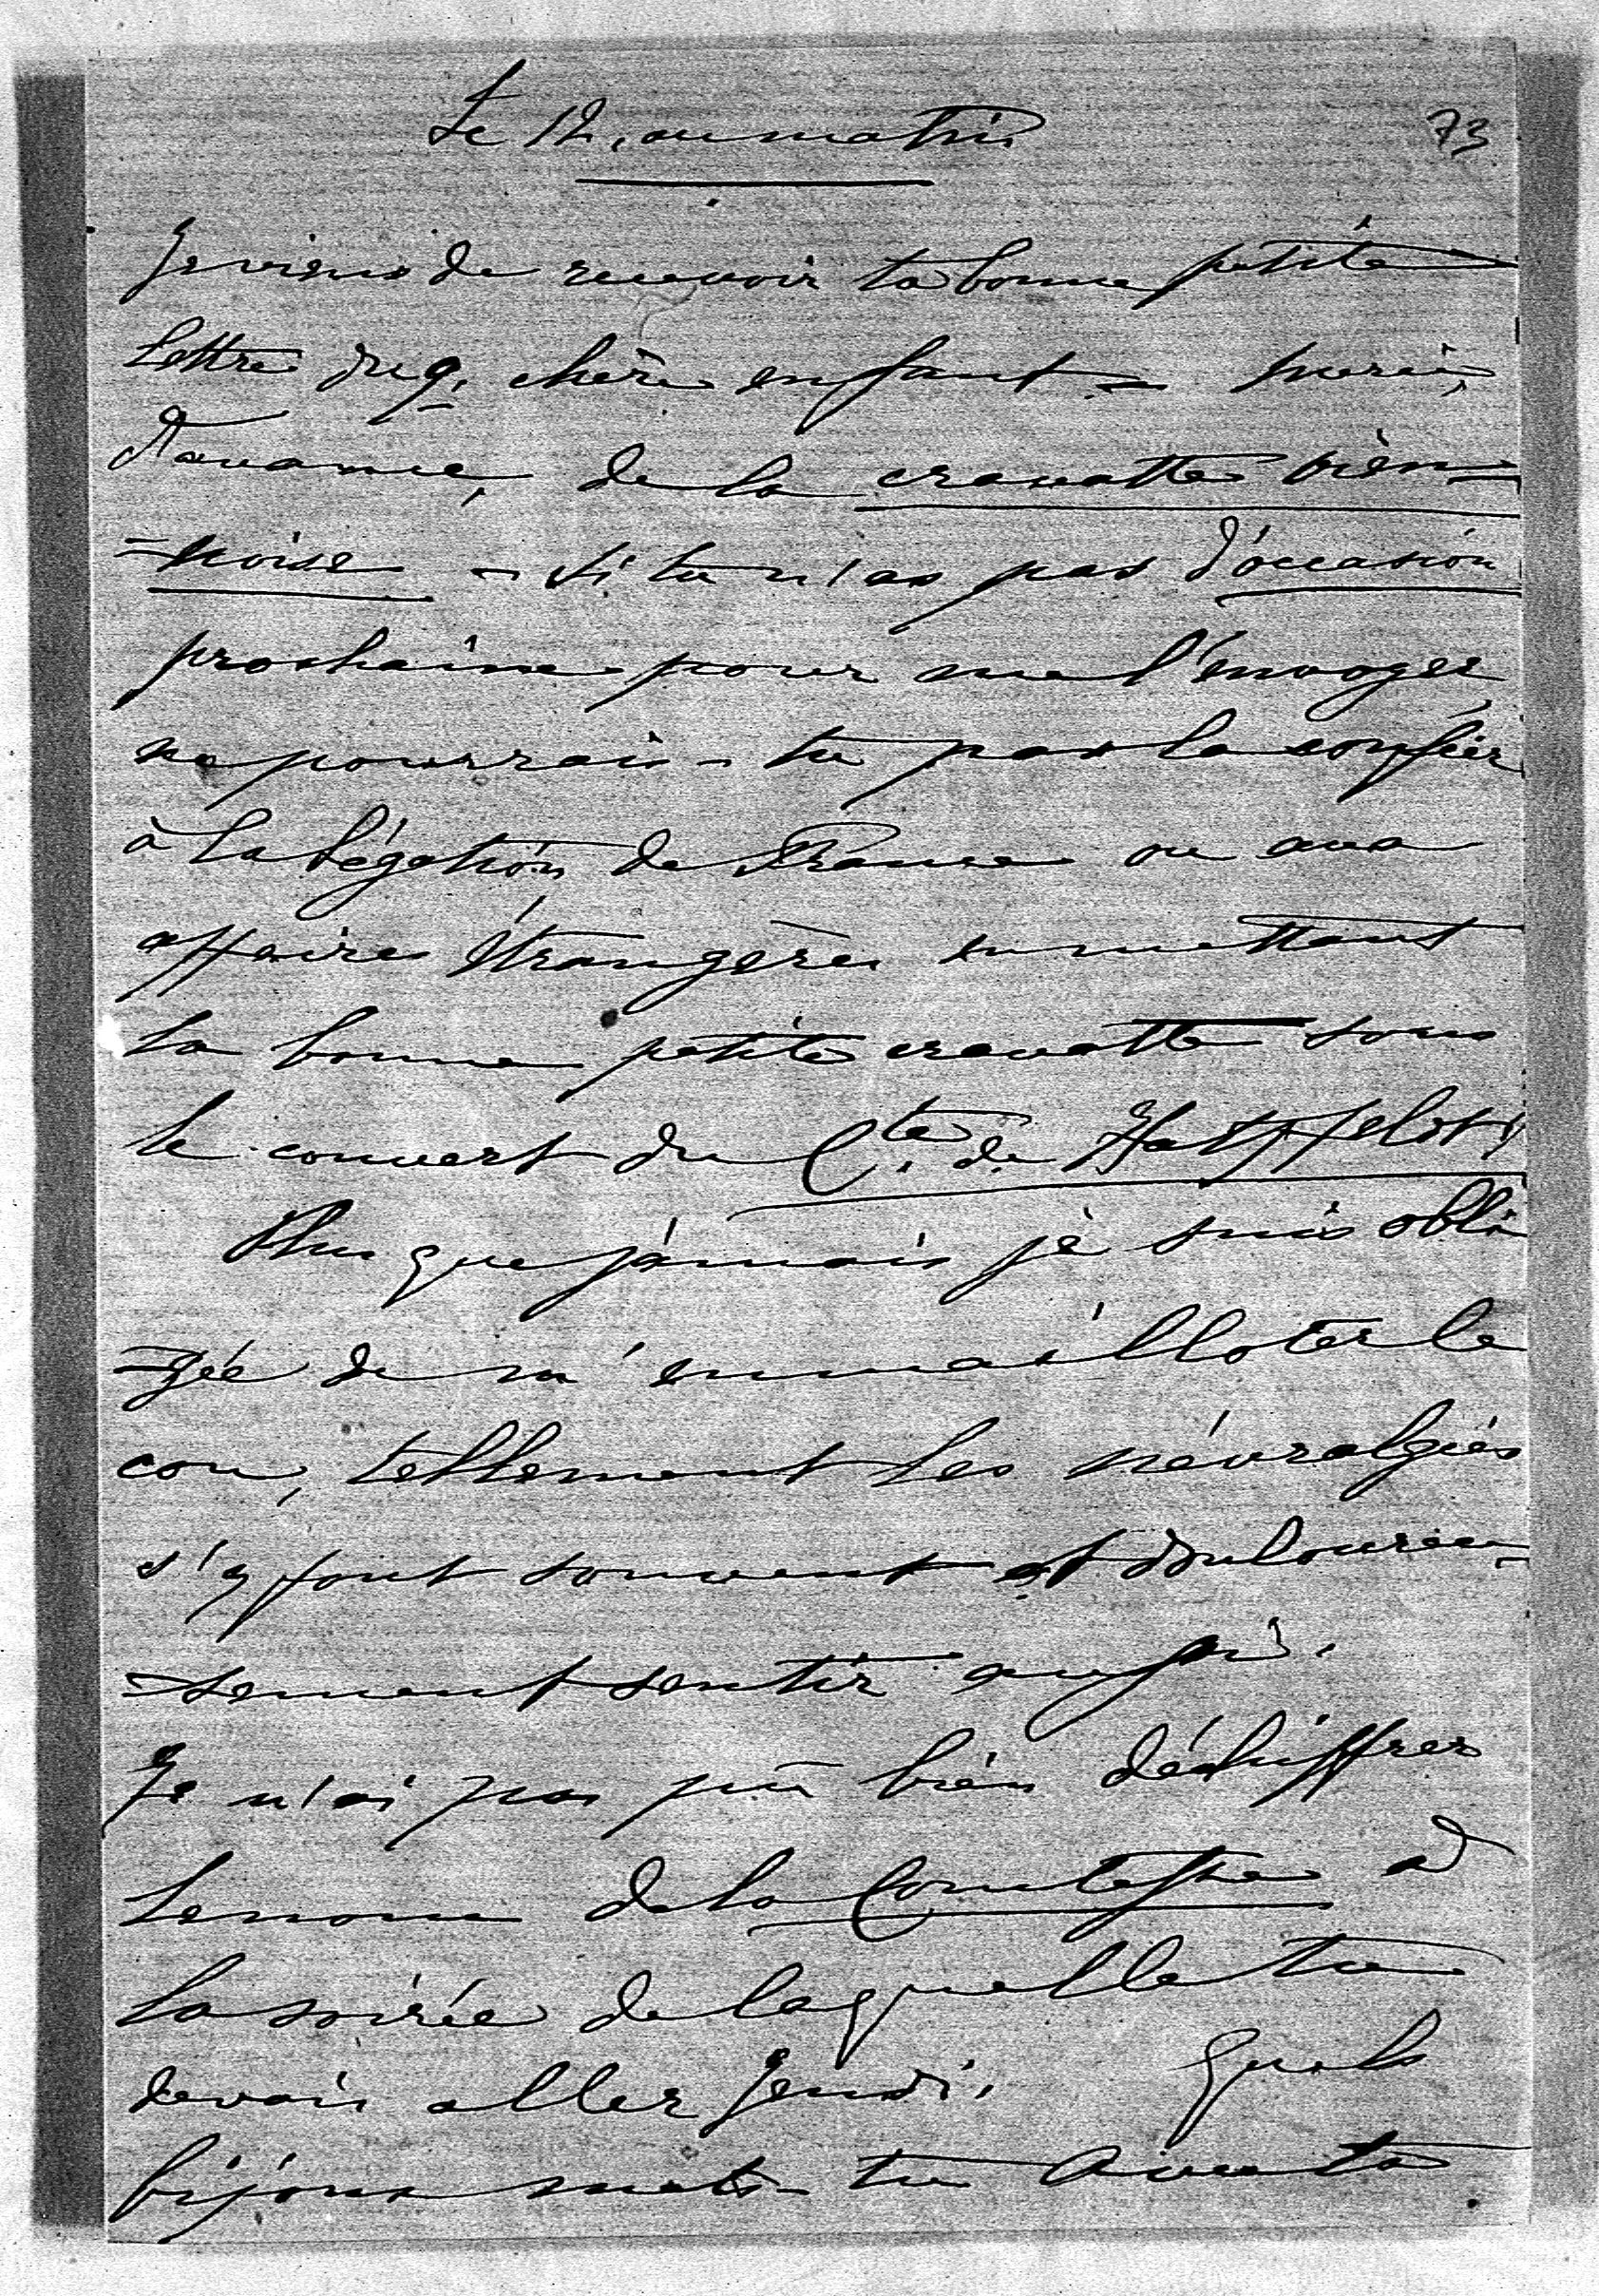 Le 12, au matin
73
Je viens de recevoir ta bonne petite
lettre du 9, chère enfant = merci,
d'avance, de la cravatte vien=
=noise – si tu n'as pas d'occasion
prochaine pour me l'envoyer,
ne pourrais-tu pas la confier
à la Légation de France ou aux
affaires étrangères en mettant
la bonne petite cravatte sous
le couvert du Cte. de Hatzfeldt,
Plus que jamais je suis obli
=gée de m'emmailloter le
cou, tellement les névralgies
s'y font souvent et douloureu=
=sement sentir aussi.
Je n'ai pas pû bien déchiffrer
le nom de la Comtesse à
la soirée de laquelle tu
devais aller Jeudi. Quels
bijoux mets-tu avec ta